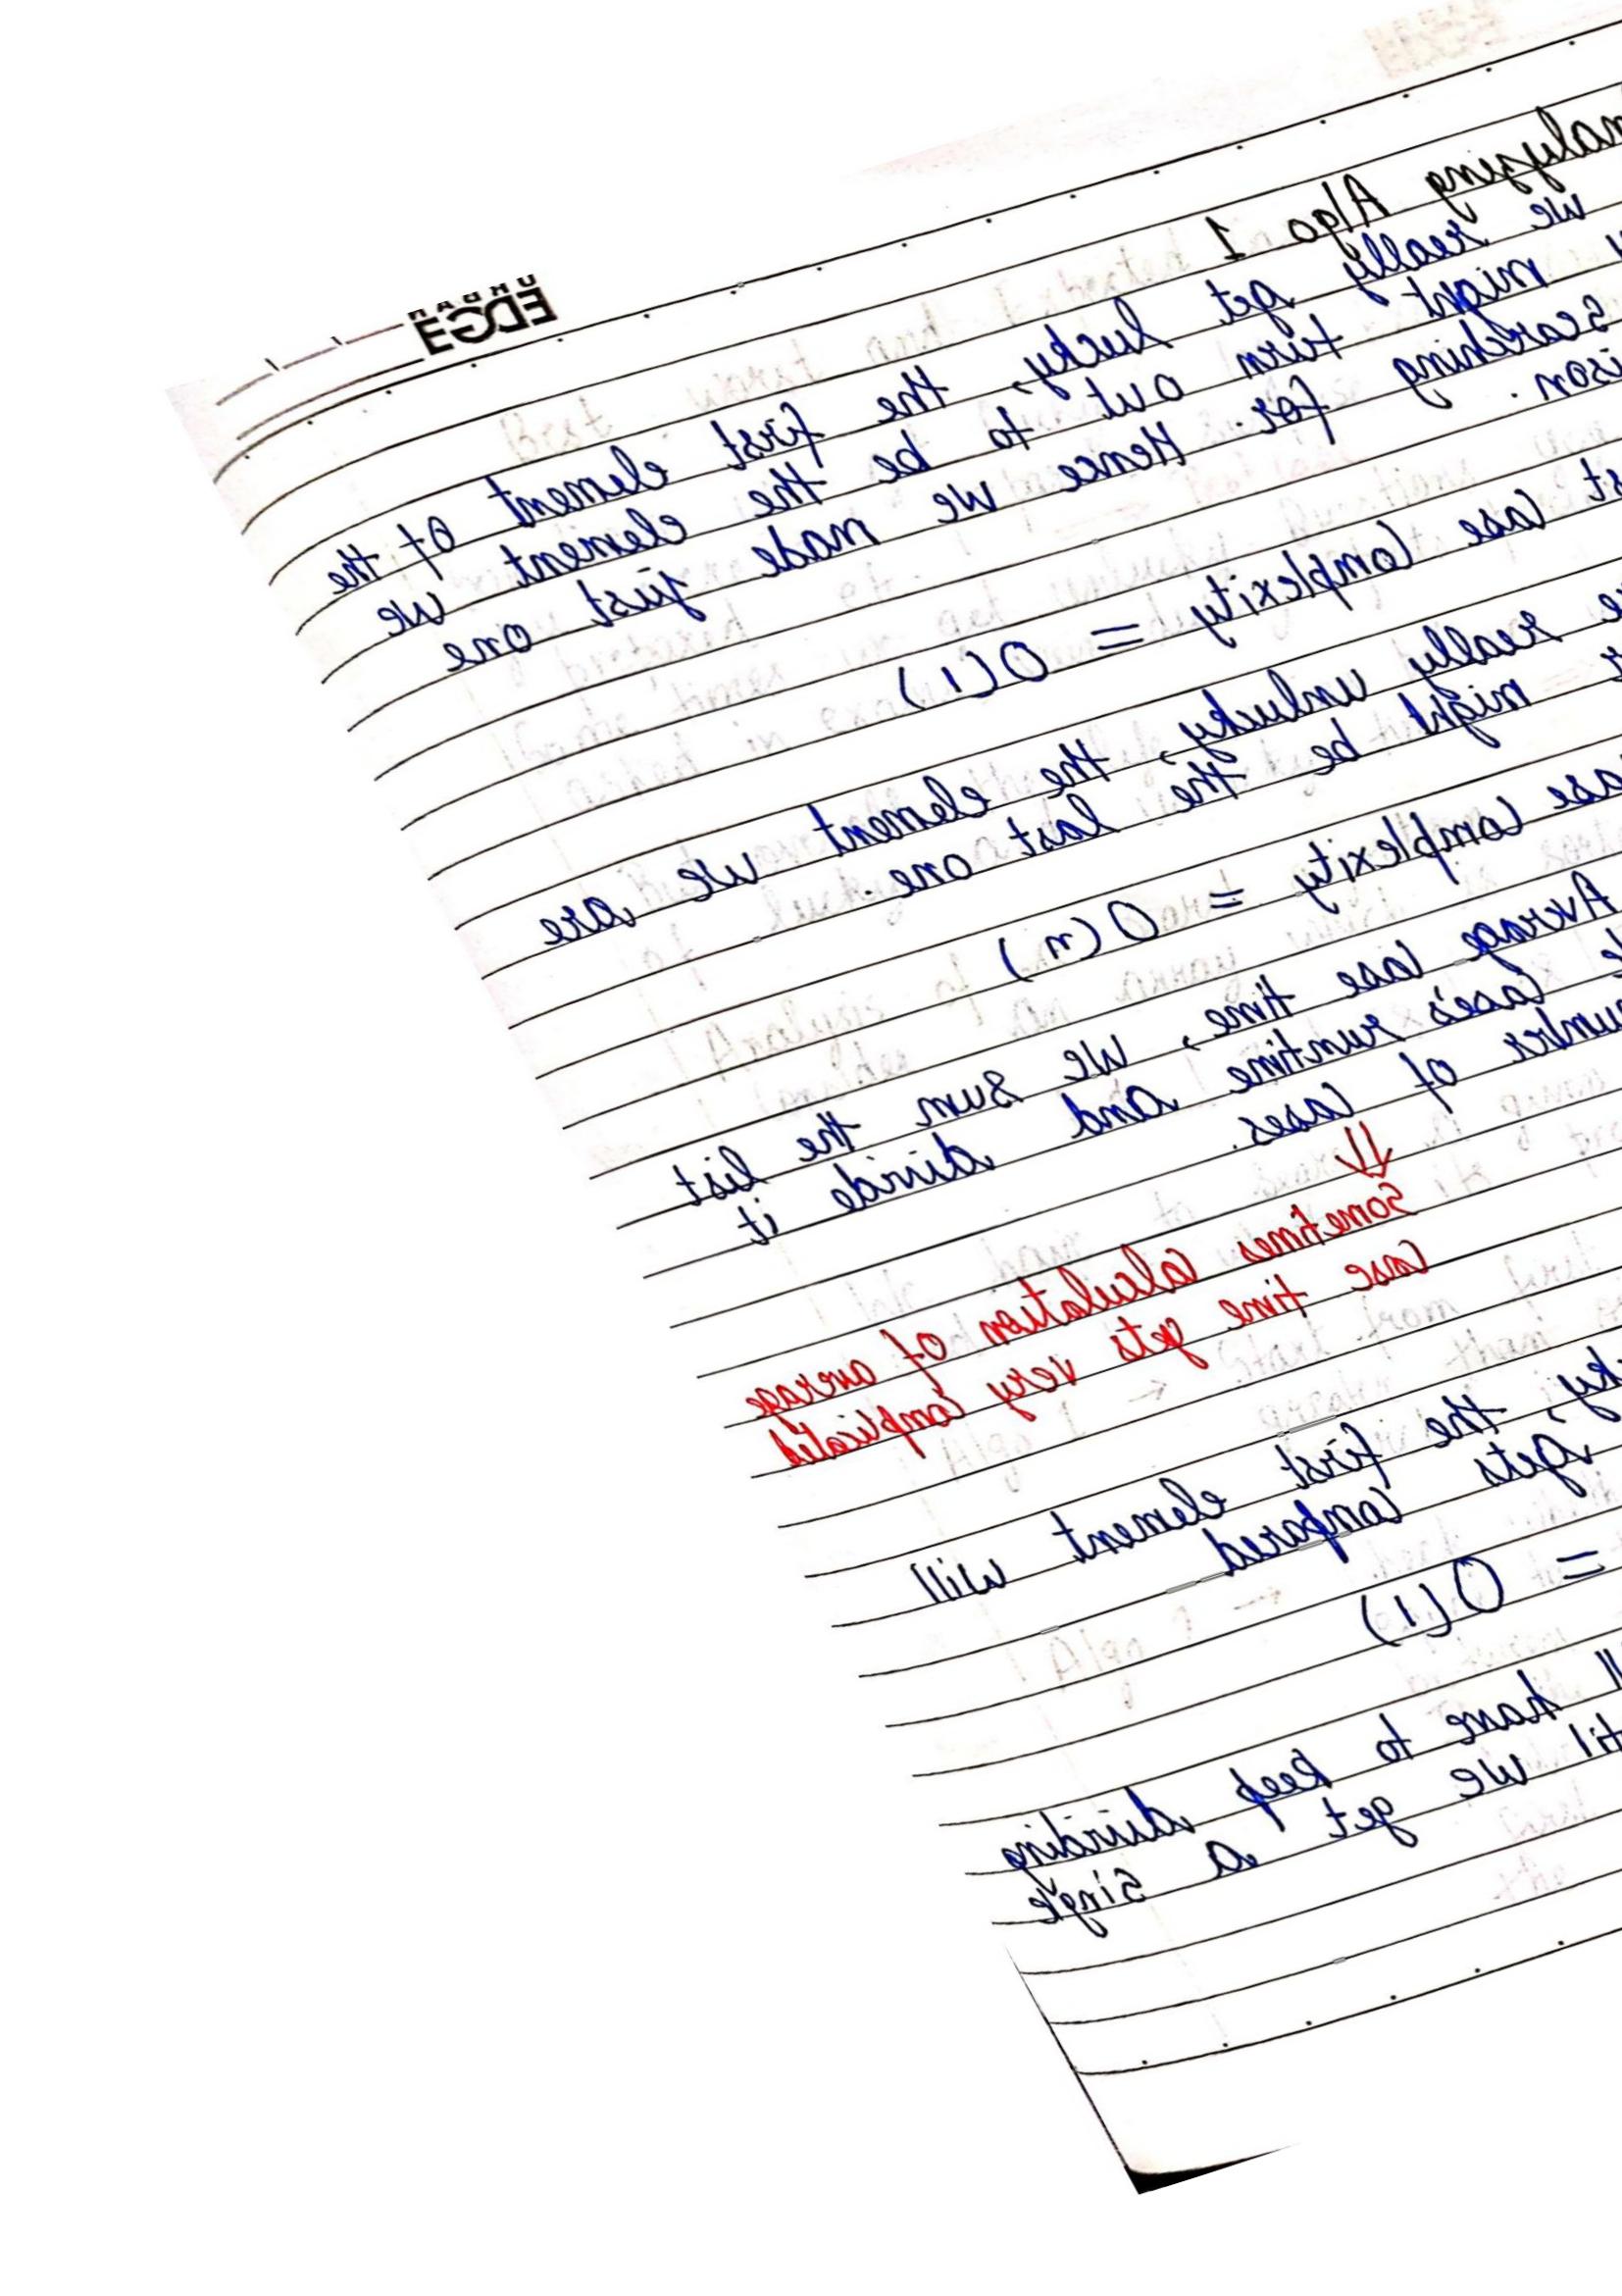 EDGE
nalyzing Algo 1
we really get lucky, the first element of the
might turn out to be the element we
searching for. Hence we made just one
ison.
st case complexity = O(1)
re really unlucky, the element we are
might be the last one.
ase complexity = O(n)
Average case time, we sum the list
case's runtime and divide it
umber of cases.
⇓
Sometimes calculation of average
case time gets very complicated
ky, the first element will
gets compared
= O(1)
ll have to keep dividing
til we get a single